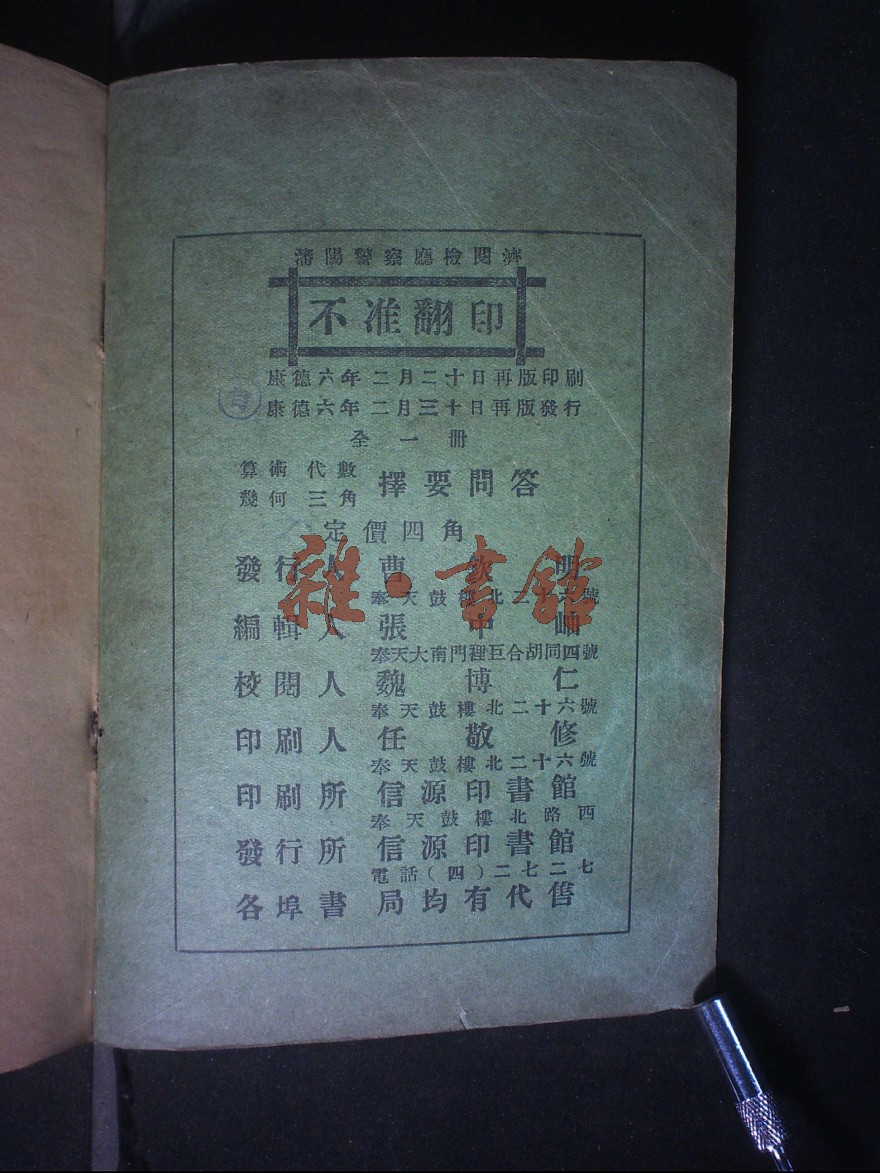 瀋陽警察廳檢閱濟
不准翻印
康德六年二月二十日再版印刷
康德六年二月三十日再版發行
全一冊
算術 代數
幾何 三角
擇要問答
定價四角
發行人 曹欽明
奉天鼓樓北二十六號
編輯人 張中岫
奉天大南門裡巨合胡同四號
校閱人 魏博仁
奉天鼓樓北二十六號
印刷人 任敬修
奉天鼓樓北二十六號
印刷所 信源印書館
奉天鼓樓北路西
發行所 信源印書館
電話(四)二七二七
各埠書局均有代售
雜·書館